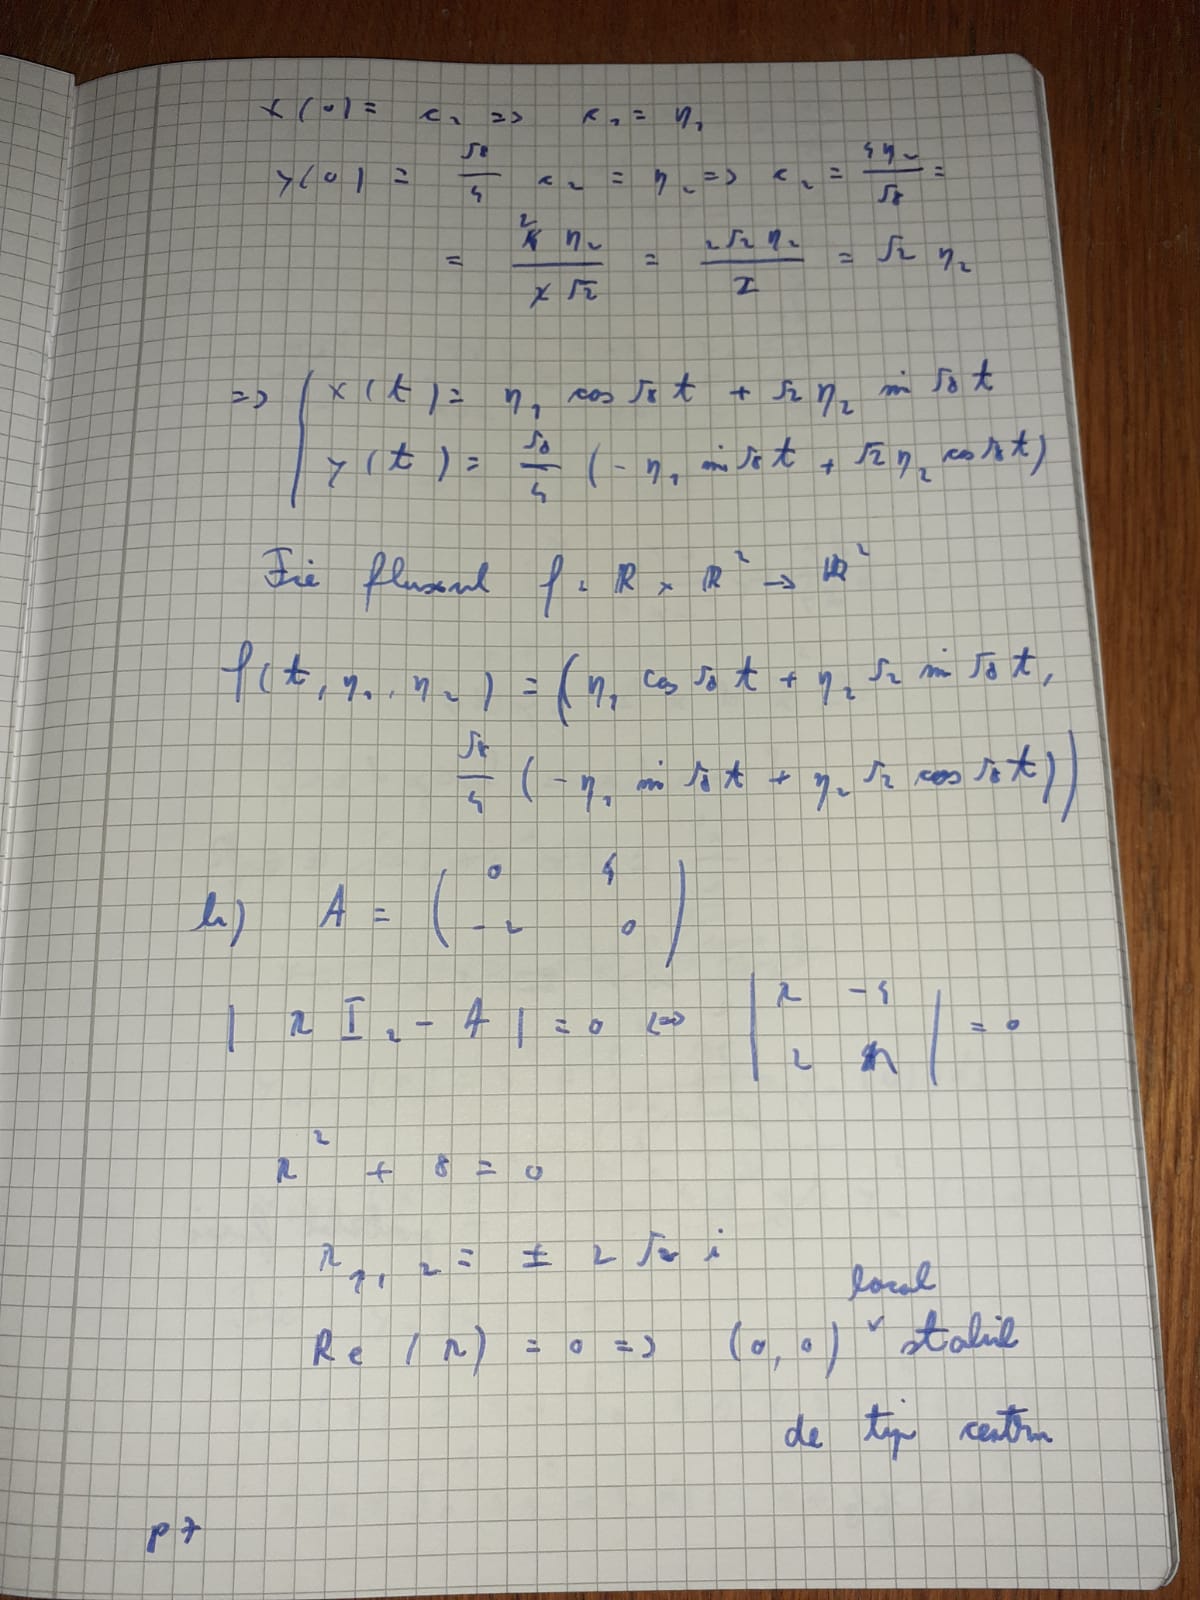 x(0) = c₁ => c₁ = η₁
y(0) = √8/4 c₂ = η₂ => c₂ = 4η₂/√8 =
= 4 2 η₂ / 2 √2 = 2√2 η₂ / 2 = √2 η₂
=> { x(t) = η₁ cos √8 t + √2 η₂ sin √8 t
y(t) = √8/4 (- η₁ sin √8 t + √2 η₂ cos √8 t)
Fie fluxul f : ℝ × ℝ² → ℝ²
f(t, η₁, η₂) = (η₁ cos √8 t + η₂ √2 sin √8 t,
√8/4 (- η₁ sin √8 t + η₂ √2 cos √8 t))
b) A = ( 0 4
-2 0 )
| r I₂ - A | = 0 <=> | r -4
2 r | = 0
r² + 8 = 0
r₁,₂ = ± 2 √2 i
local
Re (r) = 0 => (0, 0) ˅ stabil
de tip centru
p 7